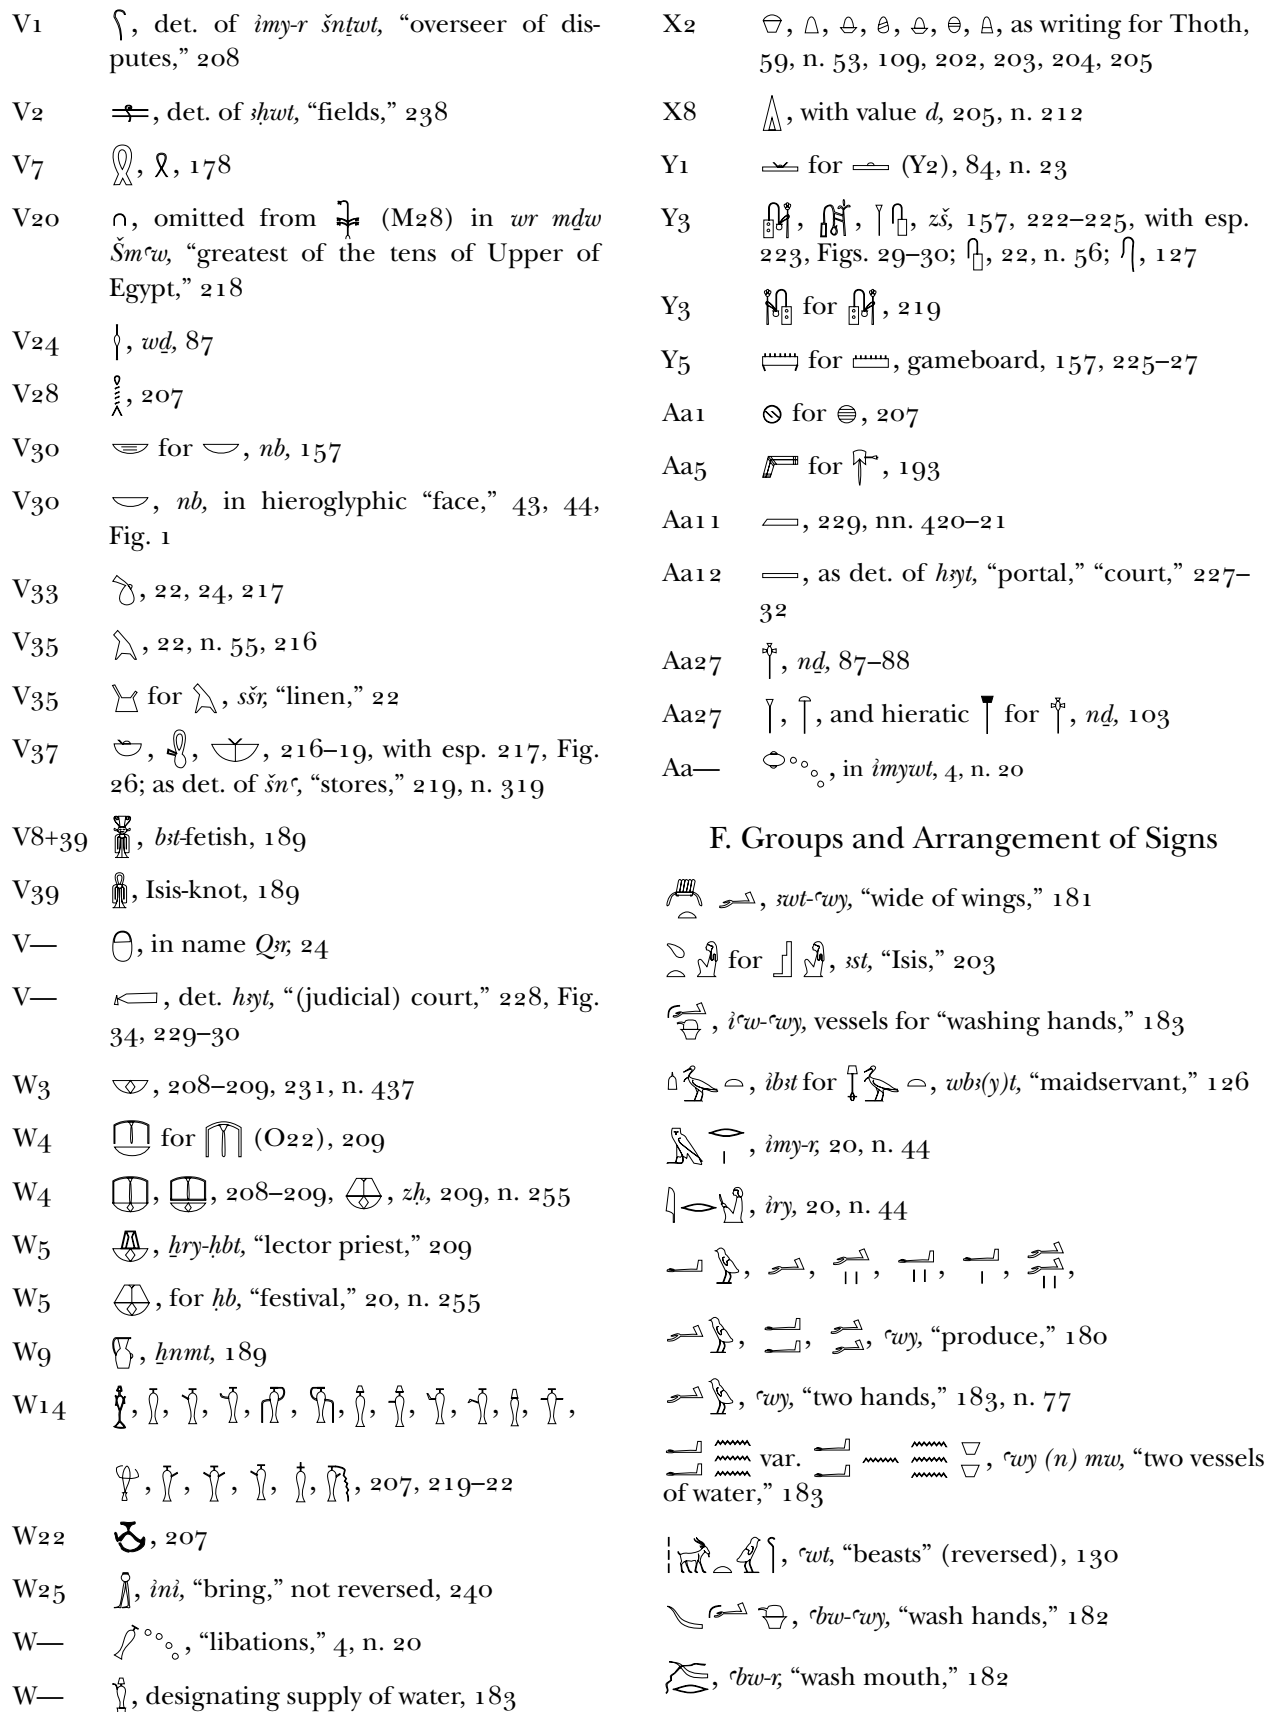 V1 , det. of ỉmy-r šnṯwt, “overseer of dis-
putes,” 208
V2 , det. of ꜣḥwt, “fields,” 238
V7 , , 178
V20 ∩, omitted from (M28) in wr mḏw
Šmꜥw, “greatest of the tens of Upper of
Egypt,” 218
V24 , wḏ, 87
V28 , 207
V30 for , nb, 157
V30 , nb, in hieroglyphic “face,” 43, 44,
Fig. 1
V33 , 22, 24, 217
V35 , 22, n. 55, 216
V35 for , sšr, “linen,” 22
V37 , , , 216–19, with esp. 217, Fig.
26; as det. of šnꜥ, “stores,” 219, n. 319
V8+39 , bꜣt-fetish, 189
V39 , Isis-knot, 189
V— , in name Qꜣr, 24
V— , det. hꜣyt, “(judicial) court,” 228, Fig.
34, 229–30
W3 , 208–209, 231, n. 437
W4 for (O22), 209
W4 , , 208–209, , zḥ, 209, n. 255
W5 , ẖry-ḥbt, “lector priest,” 209
W5 , for ḥb, “festival,” 20, n. 255
W9 , ẖnmt, 189
W14 , , , , , , , , , , , ,
, , , , , , 207, 219–22
W22 , 207
W25 , ỉnỉ, “bring,” not reversed, 240
W— , “libations,” 4, n. 20
W— , designating supply of water, 183
X2 , , , , , , , as writing for Thoth,
59, n. 53, 109, 202, 203, 204, 205
X8 , with value d, 205, n. 212
Y1 for (Y2), 84, n. 23
Y3 , , , zš, 157, 222–225, with esp.
223, Figs. 29–30; , 22, n. 56; , 127
Y3 for , 219
Y5 for , gameboard, 157, 225–27
Aa1 for , 207
Aa5 for , 193
Aa11 , 229, nn. 420–21
Aa12 , as det. of hꜣyt, “portal,” “court,” 227–
32
Aa27 , nḏ, 87–88
Aa27 , , and hieratic for , nḏ, 103
Aa— , in ỉmywt, 4, n. 20
F. Groups and Arrangement of Signs
, ꜣwt-ꜥwy, “wide of wings,” 181
for , ꜣst, “Isis,” 203
, ỉꜥw-ꜥwy, vessels for “washing hands,” 183
, ỉbꜣt for , wbꜣ(y)t, “maidservant,” 126
, ỉmy-r, 20, n. 44
, ỉry, 20, n. 44
, , , , , ,
, , , ꜥwy, “produce,” 180
, ꜥwy, “two hands,” 183, n. 77
var. , ꜥwy (n) mw, “two vessels
of water,” 183
, ꜥwt, “beasts” (reversed), 130
, ꜥbw-ꜥwy, “wash hands,” 182
, ꜥbw-r, “wash mouth,” 182